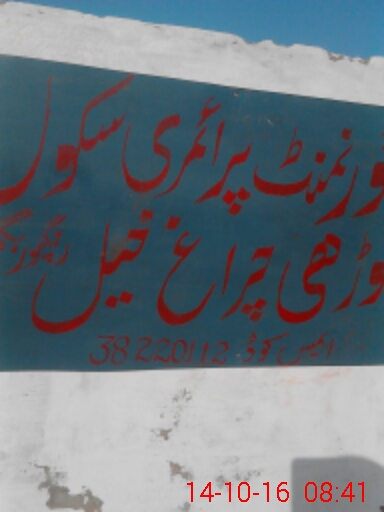 ورنمنٹ پرائمری سکول
وڑھی چراغ خیل
ایمس کوڈ: 38220112
14-10-16 08:41